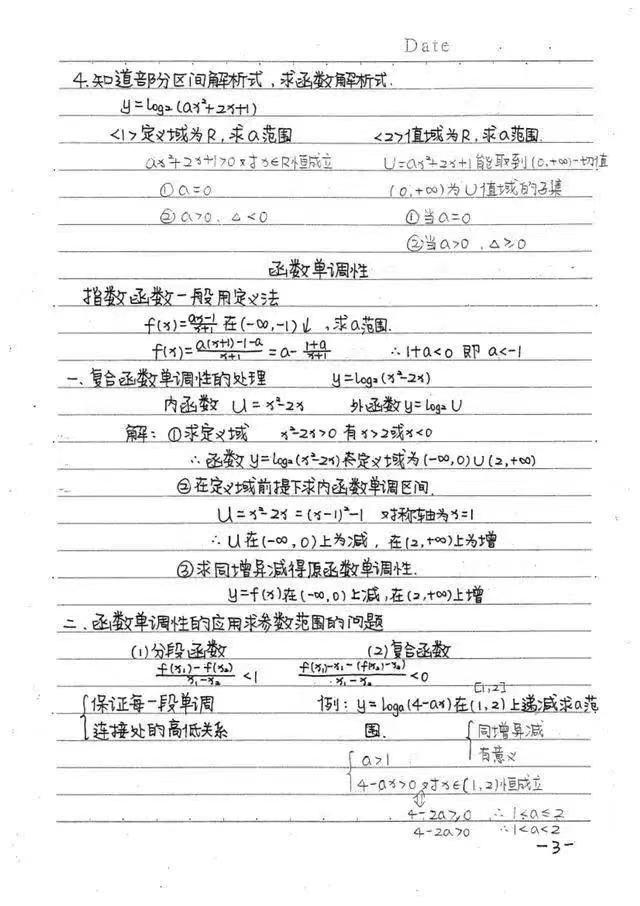 Date
4.知道部分区间解析式,求函数解析式.
y=log₂(ax²+2x+1)
<1>定义域为R,求a范围 <2>值域为R,求a范围.
ax²+2x+1>0对x∈R恒成立 U=ax²+2x+1能取到(0,+∞)一切值
①a=0 (0,+∞)为U值域的子集
②a>0,△<0 ①当a=0
②当a>0,△≥0
函数单调性
指数函数一般用定义法
f(x)=\frac{ax-1}{x+1}在(-∞,-1)↓,求a范围.
f(x)=\frac{a(x+1)-1-a}{x+1}=a-\frac{1+a}{x+1} ∴1+a<0 即 a<-1
一.复合函数单调性的处理 y=log₂(x²-2x)
内函数 U=x²-2x 外函数y=log₂U
解:①求定义域 x²-2x>0 有x>2或x<0
∴函数y=log₂(x²-2x)定义域为(-∞,0)∪(2,+∞)
②在定义域前提下求内函数单调区间.
U=x²-2x=(x-1)²-1 对称轴为x=1
∴U在(-∞,0)上为减,在(2,+∞)上为增
③求同增异减得原函数单调性.
y=f(x)在(-∞,0)上减,在(2,+∞)上增
二.函数单调性的应用求参数范围的问题
(1)分段函数 (2)复合函数
\frac{f(x₁)-f(x₂)}{x₁-x₂}<1 \frac{f(x₁)-x₁-(f(x₂)-x₂)}{x₁-x₂}<0
[1,2]
保证每一段单调 例:y=logₐ(4-ax)在(1,2)上递减求a范
连接处的高低关系 围. 同增异减
有意义
a>1
4-ax>0对x∈(1,2)恒成立
⇕
4-2a≥0 ∴1<a≤2
4-2a>0 ∴1<a<2
-3-